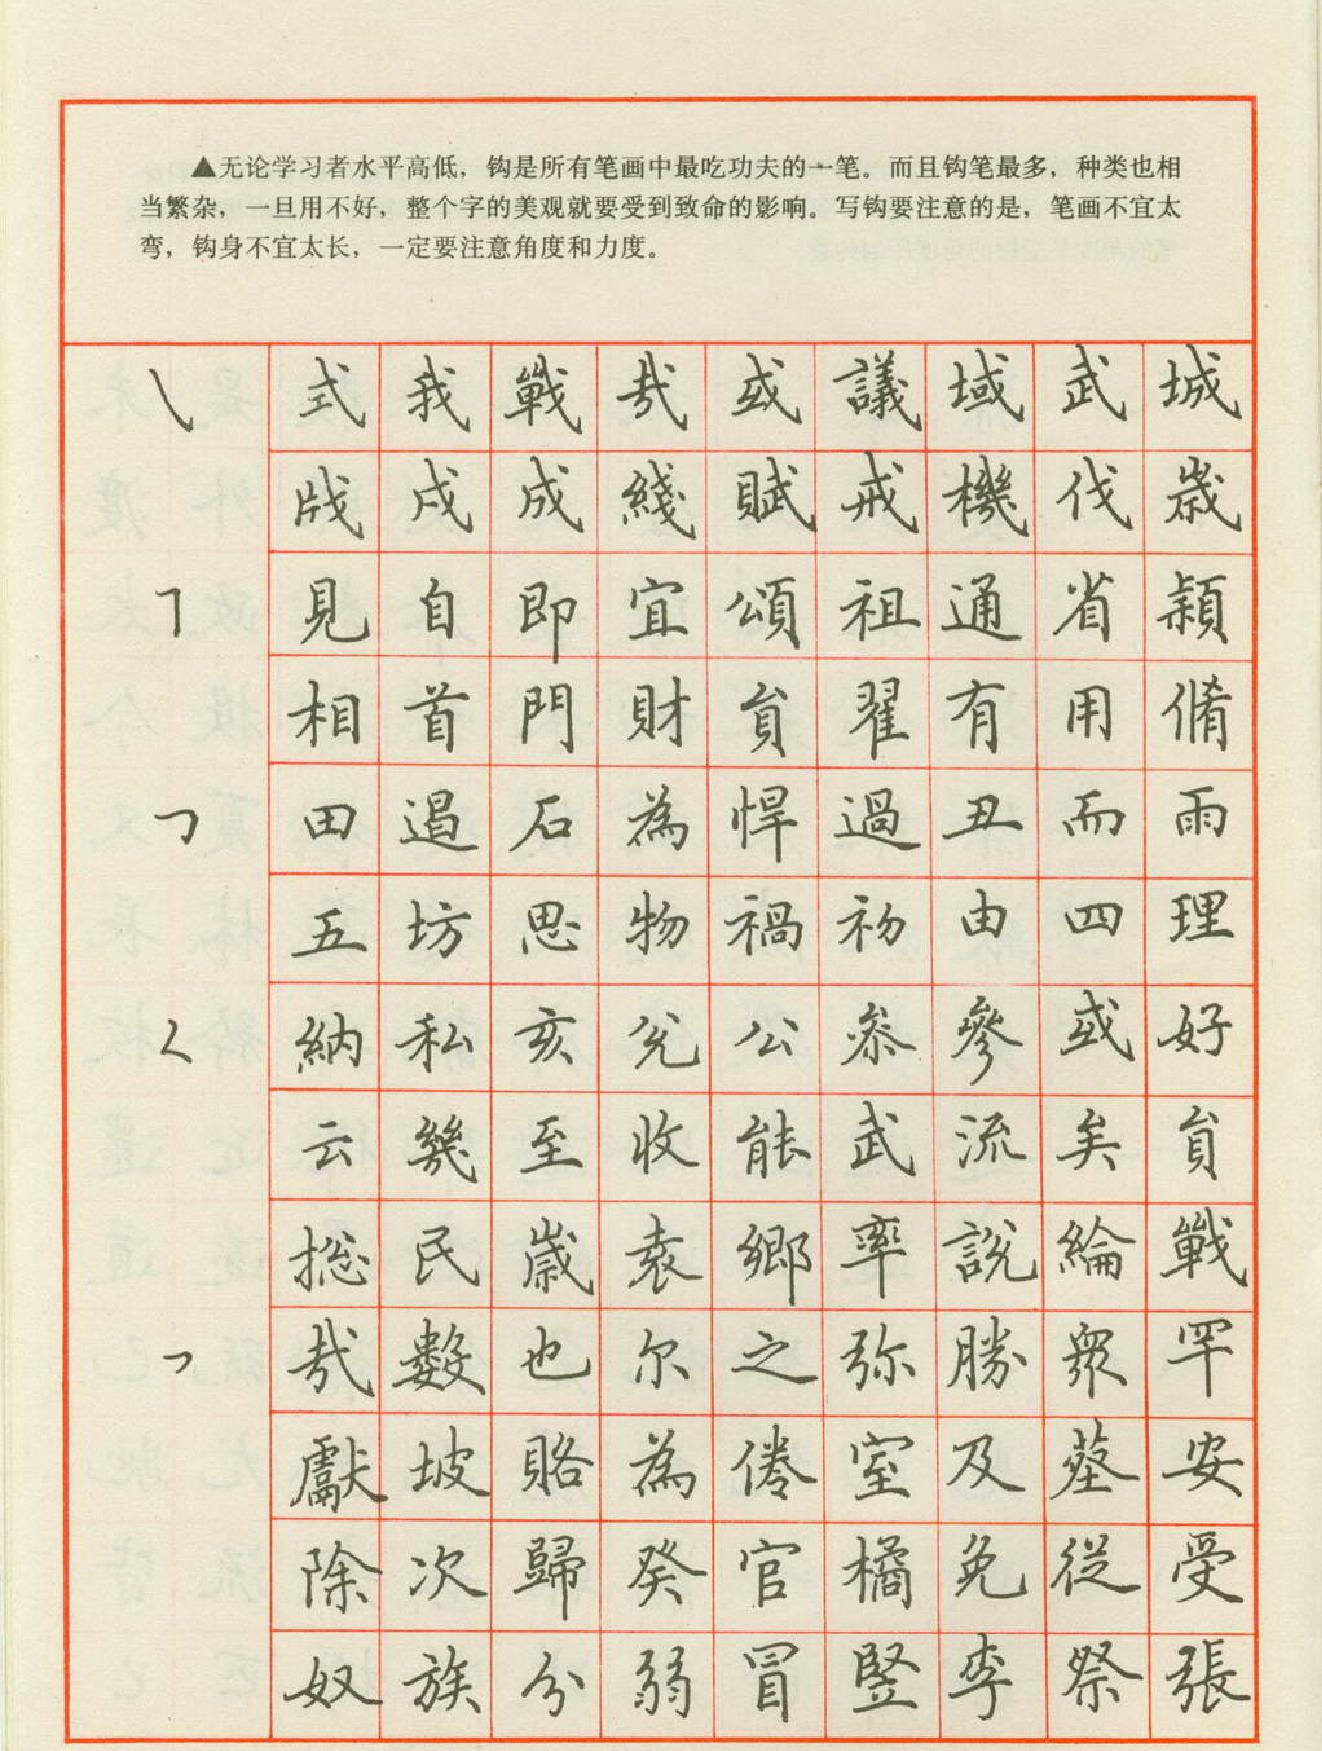 ▲无论学习者水平高低，钩是所有笔画中最吃功夫的一笔。而且钩笔最多，种类也相
当繁杂，一旦用不好，整个字的美观就要受到致命的影响。写钩要注意的是，笔画不宜太
弯，钩身不宜太长，一定要注意角度和力度。
式我戰哉或議域武城
戌成綫賦戒機伐歲
見自即宜頌祖通省穎
相首門財負翟有用脩
田遏石為悍過丑而雨
五坊思物禍初由四理
納私亥兖公叅參或好
云幾至收能武流矣負
揔民歲袁鄉率說綸戰
哉數也尔之弥勝眾罕
獻坡賂為倦室及蔡安
除次歸癸官橘免從受
奴族分弱冒豎李祭張